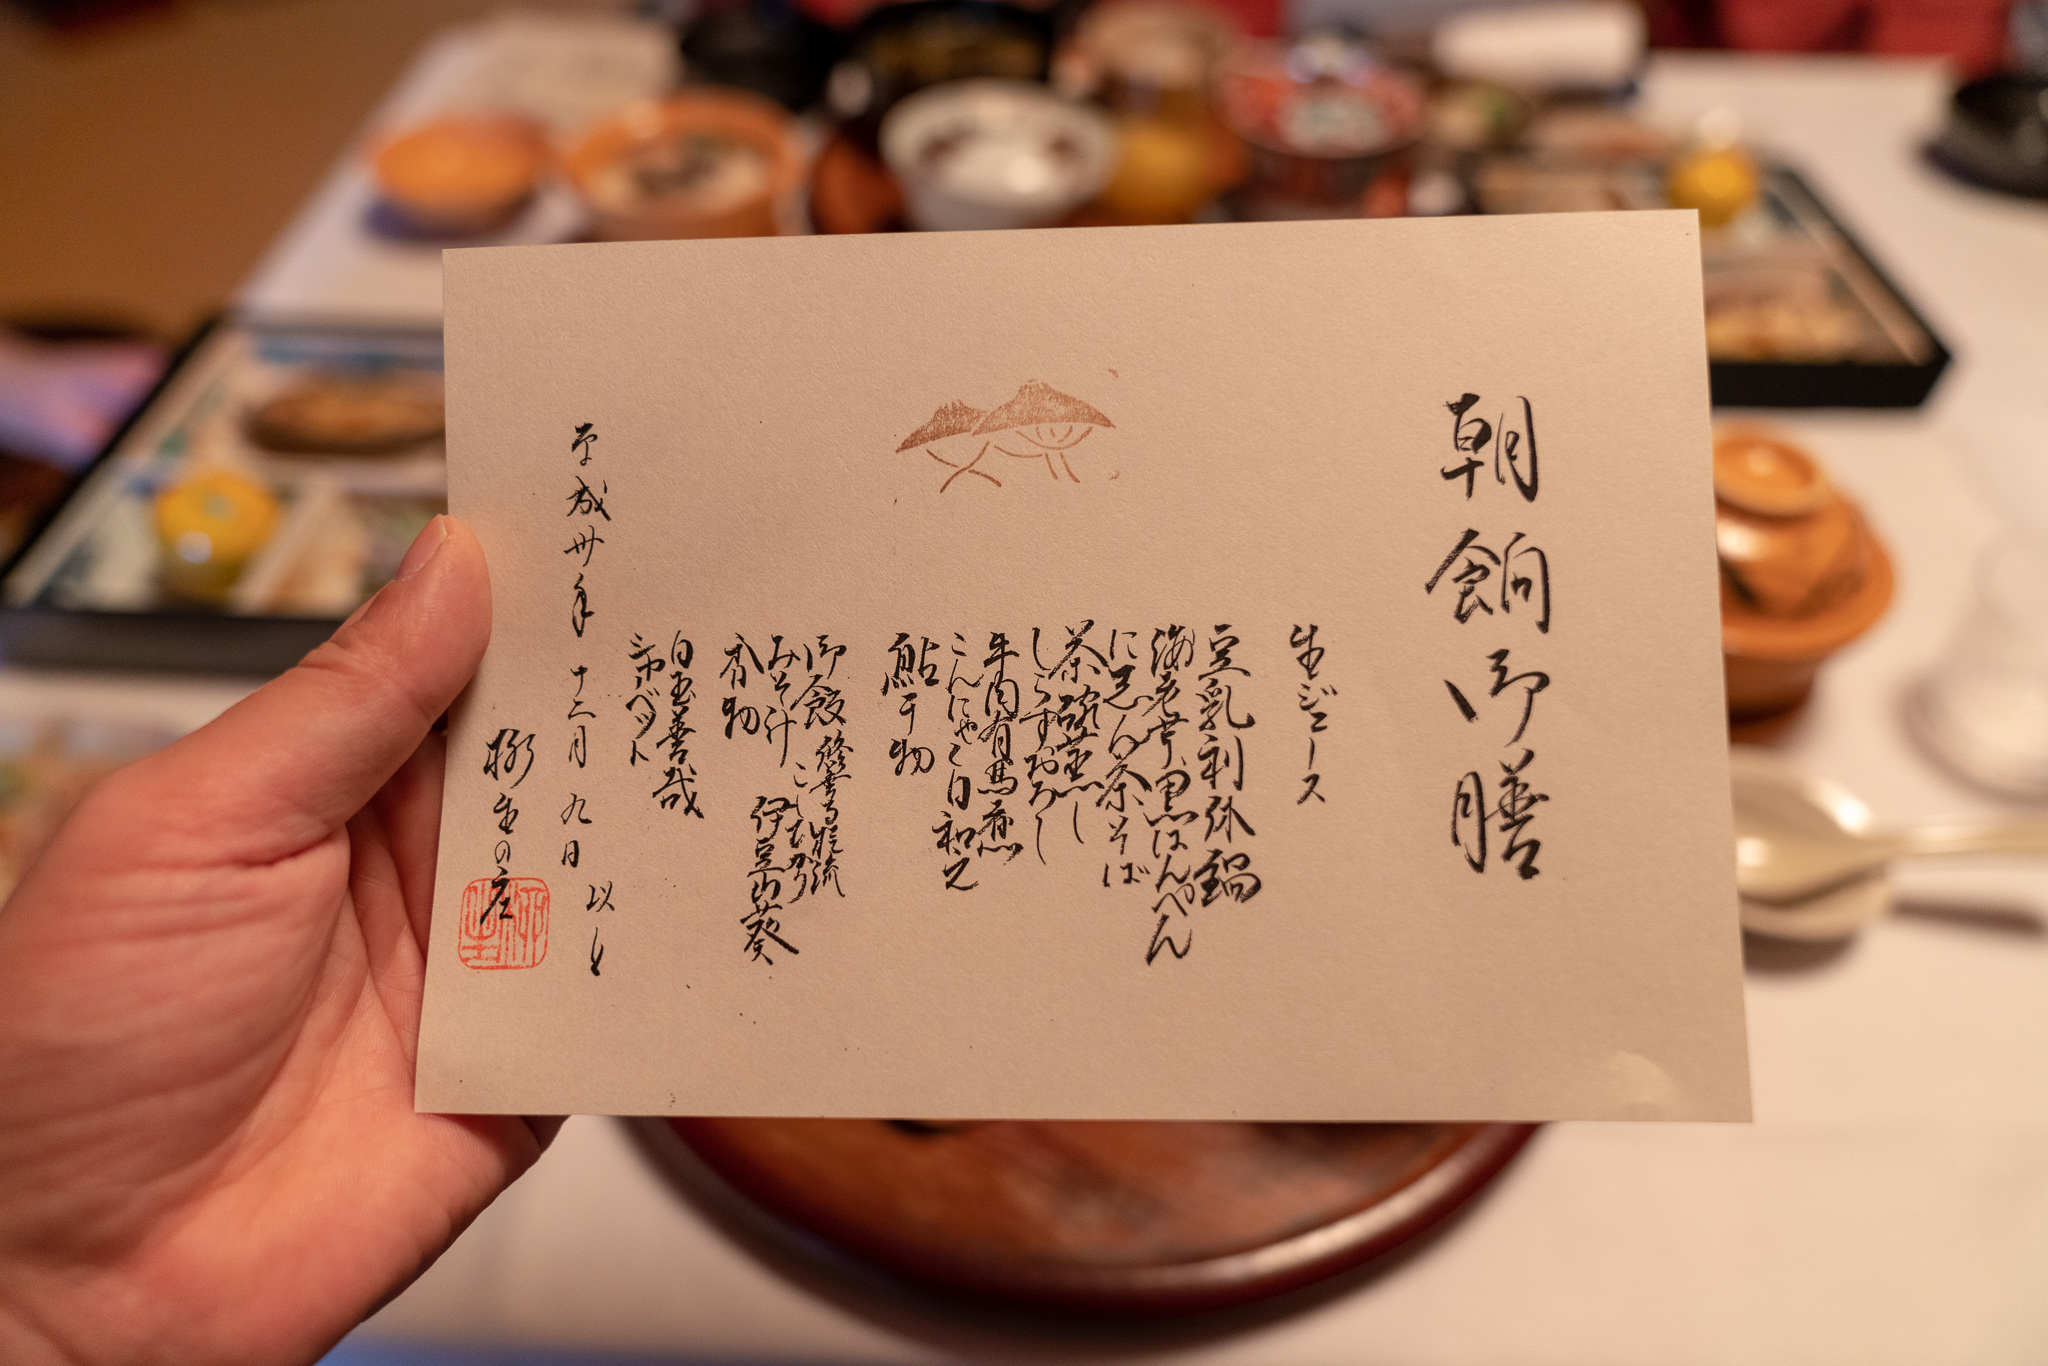 朝餉御膳
生ジュース
豆乳利休鍋
海老芋、黒はんぺん
にしん茶そば
茶碗蒸し
しらすおろし
牛肉有馬煮
こんにゃく白和え
鮎干物
御飯 修善寺 流
みそ汁 こしひかり
香物 伊豆山葵
白玉善哉
シャーベット
平成卅年 十二月 九日 以上
柳生の庄